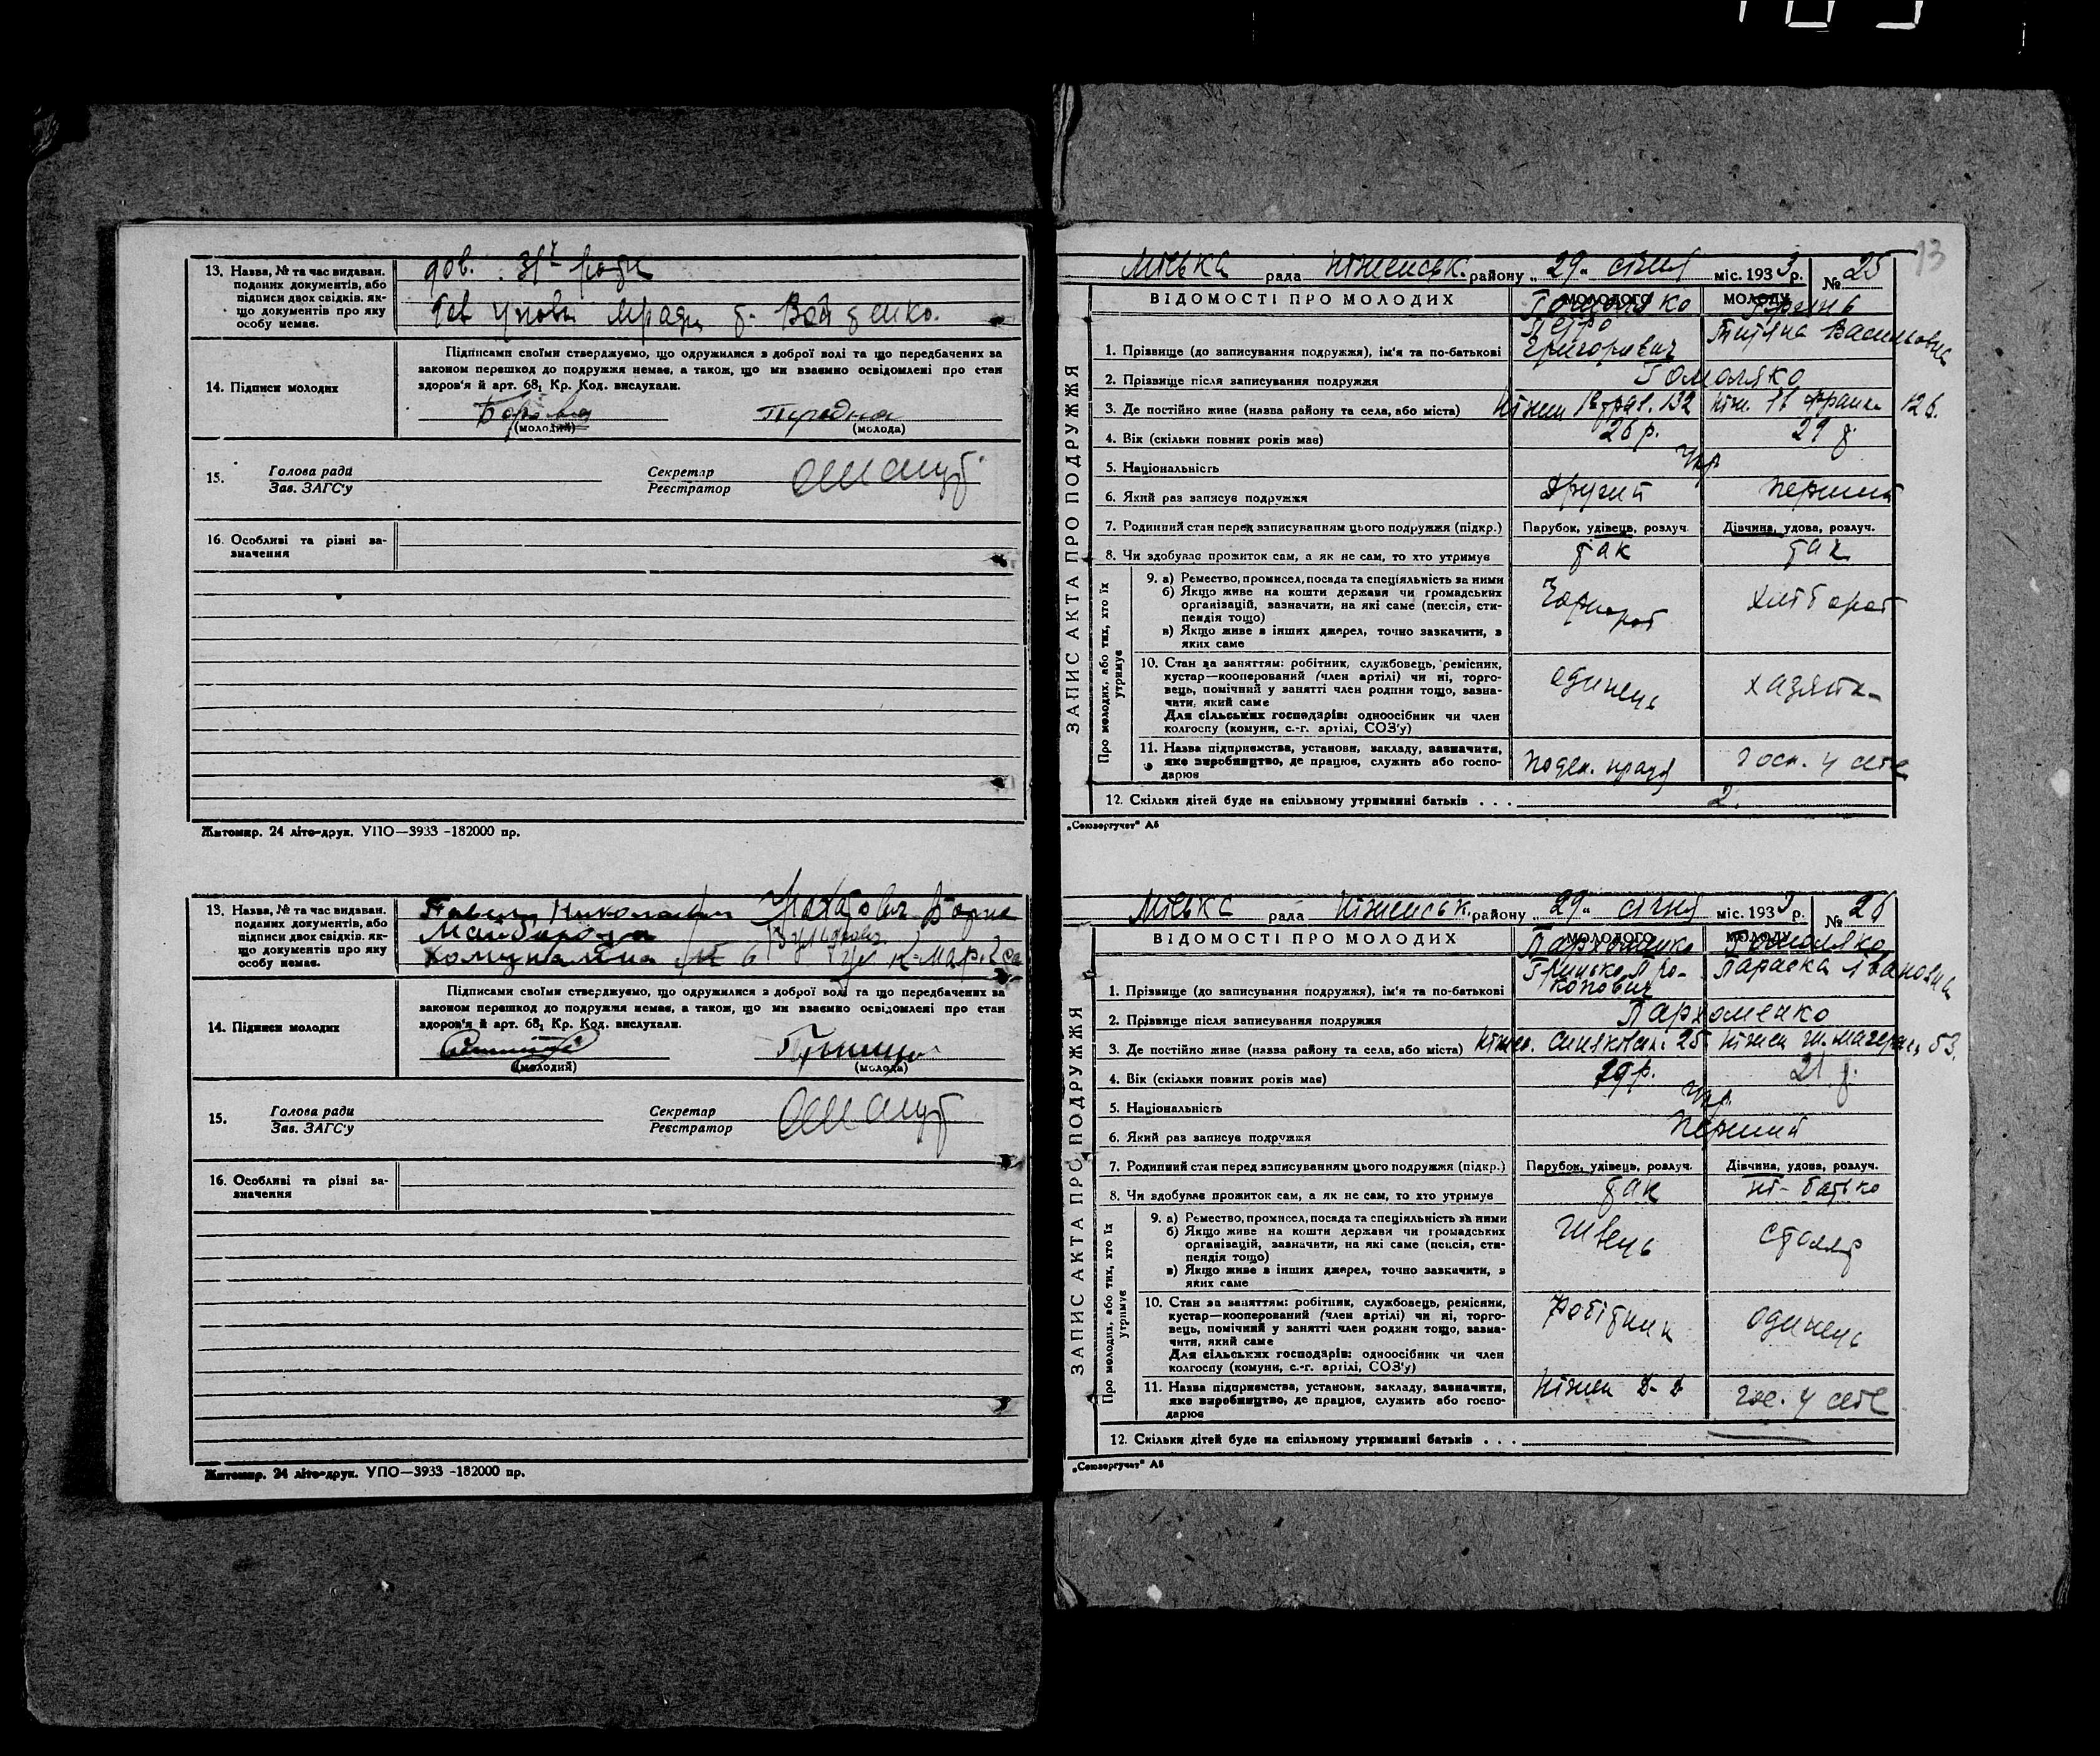 13. Назва, № та час видаван.
поданих документів, або
підписи двох свідків, як-
що документів про яку
особу немає.
дов.
Підписами своїми стверджуємо, що одружилися з доброї волі та що передбачених за
14. Підписи молодих
законом перешкод до подружжя немає, а також, що ми взаємно освідомлені про стан
здоров'я й арт. 68, Кр. Код. вислухали.
(молодий) (молода)
15. Голова ради Секретар
Зав. ЗАГС'у Реєстратор
16. Особливі та різні за-
значення
Житомир. 24 літо-друк. УПО—3933 -182000 пр.
13. Назва, № та час видаван.
поданих документів, або
підписи двох свідків, як-
що документів про яку
особу немає.
Підписами своїми стверджуємо, що одружилися з доброї волі та що передбачених за
14. Підписи молодих
законом перешкод до подружжя немає, а також, що ми взаємно освідомлені про стан
здоров'я й арт. 68, Кр. Код. вислухали.
(молодий) (молода)
15. Голова ради Секретар
Зав. ЗАГС'у Реєстратор
16. Особливі та різні за-
значення
Житомир. 24 літо-друк. УПО—3933 -182000 пр.
13
Міська рада Ніженськ. району „29„ січня міс. 1933 р. № 25
ЗАПИС АКТА ПРО ПОДРУЖЖЯ
ВІДОМОСТІ ПРО МОЛОДИХ МОЛОДОГО МОЛОДУ
Гомоляко
Петро Титяна Васильовна
1. Прізвище (до записування подружжя), ім'я та по-батькові Григорович
2. Прізвище після записування подружжя Гомоляко
3. Де постійно живе (назва району та села, або міста) Ніжен 132 Франка 126.
4. Вік (скільки повних років має) 26 р. 29 р.
5. Національність Укр
6. Який раз записує подружжя другий перший
7. Родинний стан перед записуванням цього подружжя (підкр.) Парубок, удівець, розлуч. Дівчина, удова, розлуч.
8. Чи здобуває прожиток сам, а як не сам, то хто утримує так так
Про молодих, або тих, хто їх утримує
9. а) Ремество, промисел, посада та спеціяльність за ними
б) Якщо живе на кошти держави чи громадських
організацій, зазначити, на які саме (пенсія, сти-
пендія тощо)
Чорнороб хлібороб
в) Якщо живе з інших джерел, точно зазначити, з
яких саме
10. Стан за заняттям: робітник, службовець, ремісник,
кустар—кооперований (член артілі) чи ні, торго-
вець, помічний у занятті член родини тощо, зазна-
чити, який саме
одинець хазяїн
Для сільських господарів: одноосібник чи член
колгоспу (комуни, с.-г. артілі, СОЗ'у)
11. Назва підприємства, установи, закладу, зазначити,
яке виробництво, де працює, служить або госпо-
дарює
госп. у себе
12. Скільки дітей буде на спільному утриманні батьків . . . 2.
„Союзоргучет" А5
Міська рада Ніженськ. району „29„ січня міс. 1933 р. № 26
ЗАПИС АКТА ПРО ПОДРУЖЖЯ
ВІДОМОСТІ ПРО МОЛОДИХ МОЛОДОГО МОЛОДУ
Пархоменко Гомоляко
Гринько Про- Параска Івановна
1. Прізвище (до записування подружжя), ім'я та по-батькові копович
2. Прізвище після записування подружжя Пархоменко
3. Де постійно живе (назва району та села, або міста) 25 Ніжен 53.
4. Вік (скільки повних років має) 29 р. 21 р.
5. Національність Укр.
6. Який раз записує подружжя перший
7. Родинний стан перед записуванням цього подружжя (підкр.) Парубок, удівець, розлуч. Дівчина, удова, розлуч.
8. Чи здобуває прожиток сам, а як не сам, то хто утримує так ні - батько
Про молодих, або тих, хто їх утримує
9. а) Ремество, промисел, посада та спеціяльність за ними
б) Якщо живе на кошти держави чи громадських
організацій, зазначити, на які саме (пенсія, сти-
пендія тощо)
швець столяр
в) Якщо живе з інших джерел, точно зазначити, з
яких саме
10. Стан за заняттям: робітник, службовець, ремісник,
кустар—кооперований (член артілі) чи ні, торго-
вець, помічний у занятті член родини тощо, зазна-
чити, який саме
робітник одинець
Для сільських господарів: одноосібник чи член
колгоспу (комуни, с.-г. артілі, СОЗ'у)
11. Назва підприємства, установи, закладу, зазначити,
яке виробництво, де працює, служить або госпо-
дарює
Ніжен Д-Д гос. у себе
12. Скільки дітей буде на спільному утриманні батьків . . .
„Союзоргучет" А5